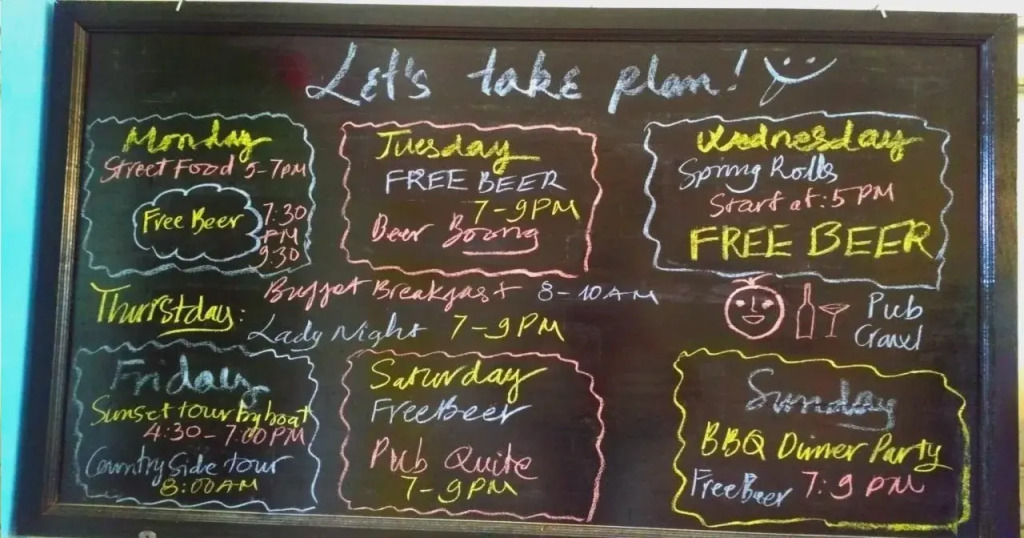 Let's take plan!
Monday
Street Food 5-7PM
Free Beer
7:30
PM
9:30
Tuesday
FREE BEER
7-9PM
Beer Boong
Wednesday
Spring Rolls
Start at: 5 PM
FREE BEER
Thurstday:
Buffet Breakfast 8-10AM
Lady Night 7-9PM
Pub
Crawl
Friday
Sunset tour by boat
4:30-7:00PM
Country Side tour
8:00AM
Saturday
Free Beer
Pub Quite
7-9PM
Sunday
BBQ Dinner Party
Free Beer 7:9 PM